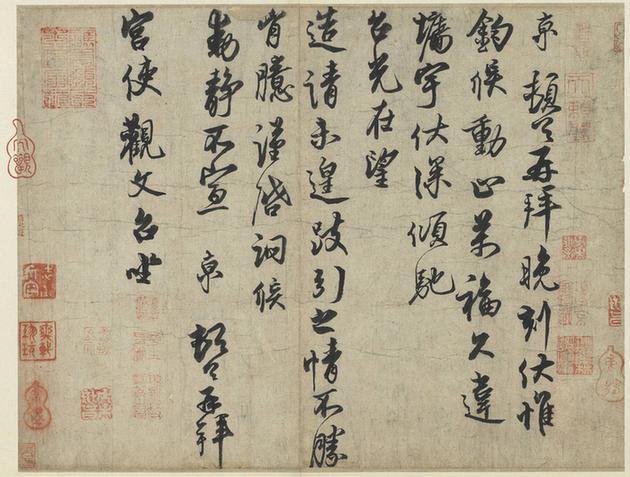 京 頓首再拜晚刻伏惟
鈞候動止萬福久違
墻宇伏深傾馳
台光在望
造請未遑跂引之情不勝
胷臆謹啓詗候
動靜不宣 京 頓首再拜
宮使觀文台坐